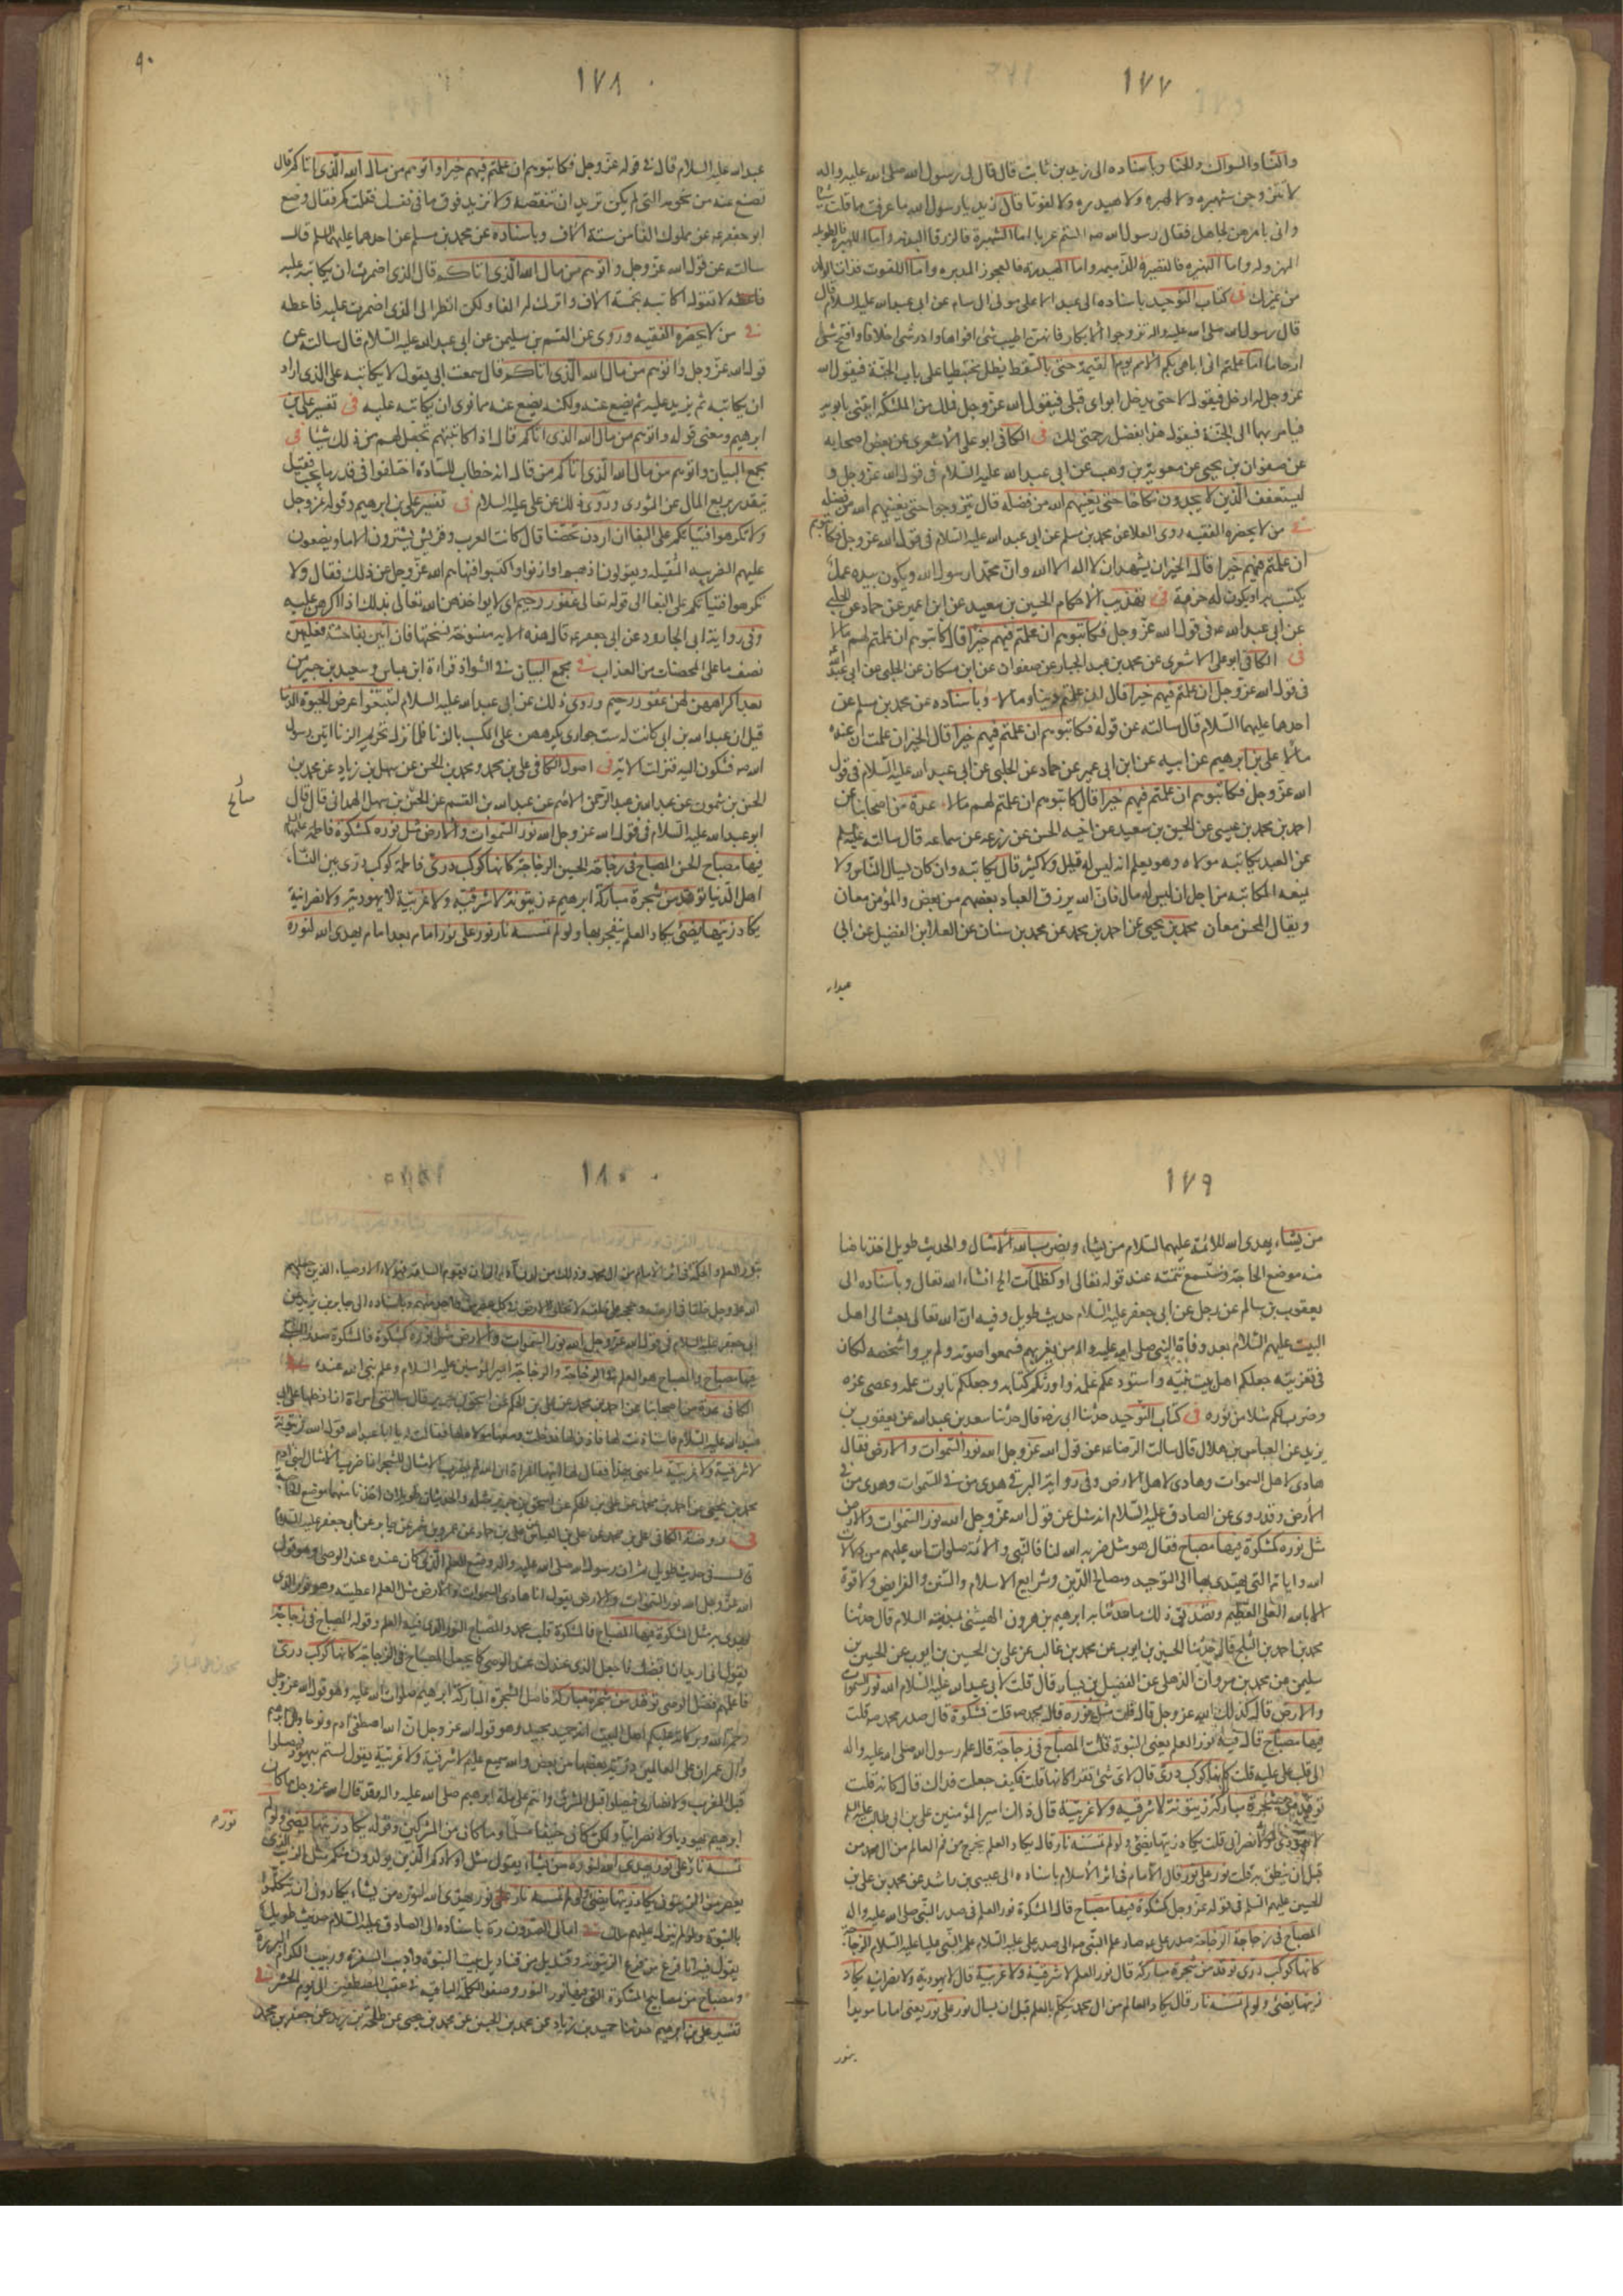 ١٧٧
والنساء والسواك والحنا وباسناده الى زيد بن ثابت قال قال لى رسول الله صلى الله عليه واله
لا تتزوجن شهبره ولا لهبره ولا هيدره ولا لفوتا قال زيد يا رسول الله ما عرفت مما قلت شيئا
وانى بامرهن لجاهل فقال رسول الله صه الستم عربا اما الشهبرة فالزرقا البذيه واما اللهبره فالطويله
المهزوله واما النهبره فالقصيرة الذميمه واما الهيدره فالعجوز المدبره واما اللفوت فذات الولد
من غيرك فى كتاب التوحيد باسناده الى عبد الاعلى مولى ال سام عن ابى عبد الله عليه السلام قال
قال رسول الله صلى الله عليه واله تزوجوا الابكار فانهن اطيب شئ افواها وادر شئ اخلافا وافتح شئ
ارحاما اما علمتم انى اباهى بكم الامم يوم القيمة حتى بالسقط يظل محبنطيا على باب الجنة فيقول الله
عز وجل له ادخل فيقول لا حتى يدخل ابواى قبلى فيقول الله عز وجل لملك من الملئكة ايتنى بابويه
فيامر بهما الى الجنة فيقول هذا بفضل رحمتى لك فى الكافى ابو على الاشعرى عن بعض اصحابه
عن صفوان بن يحيى عن معوية بن وهب عن ابى عبد الله عليه السلام فى قول الله عز وجل و
ليستعفف الذين لا يجدون نكاحا حتى يغنيهم الله من فضله قال يتزوجوا حتى يغنيهم الله من فضله
فى من لا يحضره الفقيه روى العلا عن محمد بن مسلم عن ابى عبد الله عليه السلام فى قول الله عز وجل فكاتبوهم
ان علمتم فيهم خيرا قال الخير ان يشهد ان لا اله الا الله وان محمدا رسول الله ويكون بيده عمل
يكتسب به او يكون له حرفة فى تهذيب الاحكام الحسين بن سعيد عن ابن ابى عمير عن حماد عن الحلبى
عن ابى عبد الله عه فى قول الله عز وجل فكاتبوهم ان علمتم فيهم خيرا قال كاتبوهم ان علمتم لهم مالا
فى الكافى ابو على الاشعرى عن محمد بن عبد الجبار عن صفوان عن ابن مسكان عن الحلبى عن ابى عبد الله
فى قول الله عز وجل ان علمتم فيهم خيرا قال ان علمتم دينا ومالا وباسناده عن محمد بن مسلم عن
احدهما عليهما السلام قال سالته عن قوله فكاتبوهم ان علمتم فيهم خيرا قال الخير ان علمت ان عنده
مالا على بن ابرهيم عن ابيه عن ابن ابى عمير عن حماد عن الحلبى عن ابى عبد الله عليه السلام فى قول
الله عز وجل فكاتبوهم ان علمتم فيهم خيرا قال كاتبوهم ان علمتم لهم مالا عدة من اصحابنا عن
احمد بن محمد بن عيسى عن الحسين بن سعيد عن اخيه الحسن عن زرعه عن سماعه قال سالته عليه السلم
عن العبد يكاتبه مولاه وهو يعلم انه ليس له قليل ولا كثير قال يكاتبه وان كان يسال الناس ولا
يمنعه المكاتبه من اجل ان ليس له مال فان الله يرزق العباد بعضهم من بعض والمؤمن معان
ويقال المحسن معان محمد بن يحيى عن احمد بن محمد عن محمد بن سنان عن العلا بن الفضيل عن ابى
عبد الله
١٧٨
٩٠
عبد الله عليه السلام قال فى قوله عز وجل فكاتبوهم ان علمتم فيهم خيرا واتوهم من مال الله الذى اتاكم قال
تضع عنه من نجومه التى لم يكن تريد ان تنقصه ولا تزيد فوق ما فى نفسك فقلت كم فقال وضع
ابو جعفر عه عن مملوك الفا من ستة الاف وباسناده عن محمد بن مسلم عن احدهما عليهما السلم قال
سالته عن قول الله عز وجل واتوهم من مال الله الذى اتاكم قال الذى اضمرت ان يكاتبه عليه
لا تقول اكاتبه بخمسة الاف واترك له الفا ولكن انظر الى الذى اضمرت عليه فاعطه
فى من لا يحضره الفقيه وروى عن القسم بن سليمن عن ابى عبد الله عليه السلام قال سالته عن
قول الله عز وجل واتوهم من مال الله الذى اتاكم قال سمعت ابى يقول لا يكاتبه على الذى اراد
ان يكاتبه ثم يزيد عليه ثم يضع عنه ولكنه يضع عنه مما نوى ان يكاتبه عليه فى تفسير على بن
ابرهيم ومعنى قوله واتوهم من مال الله الذى اتاكم قال اذا كاتبتهم تجعل لهم من ذلك شيئا فى
مجمع البيان واتوهم من مال الله الذى اتاكم من قال انه خطاب للسادة اختلفوا فى قدر ما يجب فقيل
يتقدر بربع المال عن الثورى وروى ذلك عن على عليه السلام فى تفسير على بن ابرهيم وقوله عز وجل
ولا تكرهوا فتياتكم على البغا ان اردن تحصنا قال كانت العرب وقريش يشترون الاما ويضعون
عليهم الضريبه الثقيله ويقولون اذهبوا وازنوا واكتسبوا فنهاهم الله عز وجل عن ذلك فقال ولا
تكرهوا فتياتكم على البغا الى قوله تعالى غفور رحيم اى لا يواخذهن الله تعالى بذلك اذا اكرهن عليه
وفى رواية ابى الجارود عن ابى جعفر عه قال هذه الايه منسوخة نسختها فان اتين بفاحشة فعليهن
نصف ما على المحصنات من العذاب فى مجمع البيان فى الشواذ قراءة ابن عباس وسعيد بن جبير من
بعد اكراههن لهن غفور رحيم وروى ذلك عن ابى عبد الله عليه السلام لتبتغوا عرض الحيوة الدنيا
قيل ان عبد الله بن ابى كانت له ست جوارى يكرههن على الكسب بالزنا فلما نزل تحريم الزنا اتين رسول
الله صه فشكون اليه فنزلت الاية فى اصول الكافى على بن محمد ومحمد بن الحسن عن سهل بن زياد عن محمد بن
الحسن بن شمون عن عبد الله بن عبد الرحمن الاصم عن عبد الله بن القسم عن الحسن بن سهل الهمدانى قال قال
صالح
ابو عبد الله عليه السلام فى قول الله عز وجل الله نور السموات والارض مثل نوره كمشكوة فاطمة عليها السلام
فيها مصباح الحسن المصباح فى زجاجة الحسين الزجاجة كانها كوكب درى فاطمة كوكب درى بين النساء
اهل الدنيا توقد من شجرة مباركة ابرهيم عه زيتونة لا شرقية ولا غربية لا يهودية ولا نصرانية
يكاد زيتها يضئ يكاد العلم ينفجر بها ولو لم تمسسه نار نور على نور امام بعد امام يهدى الله لنوره
١٧٩
من يشاء يهدى الله للائمة عليهم السلام من يشاء ويضرب الله الامثال والحديث طويل اخذنا ما
منه موضع الحاجة وستسمع تتمته عند قوله تعالى او كظلمات الخ انشاء الله تعالى وباسناده الى
يعقوب بن سالم عن رجل عن ابى جعفر عليه السلام حديث طويل وفيه ان الله تعالى بعث الى اهل
البيت عليهم السلام بعد وفاة النبى صلى الله عليه واله من يعزيهم فسمعوا صوته ولم يروا شخصه لكان
فى تعزيته جعلكم اهل بيت نبيه واستودعكم علمه واورثكم كتابه وجعلكم تابوت علمه وعصى عزه
وضرب لكم مثلا من نوره فى كتاب التوحيد حدثنا ابى ره قال حدثنا سعد بن عبد الله عن يعقوب بن
يزيد عن العباس بن هلال قال سالت الرضا عه عن قول الله عز وجل الله نور السموات والارض فقال
هادى لاهل السموات وهادى لاهل الارض وفى رواية البرقى هدى من فى السموات وهدى من فى
الارض وقد روى عن الصادق عليه السلام انه سئل عن قول الله عز وجل الله نور السموات والارض
مثل نوره كمشكوة فيها مصباح فقال هو مثل ضربه الله لنا فالنبى والائمة صلوات الله عليهم من دلالات
الله واياته التى يهتدى بها الى التوحيد ومصالح الدين وشرايع الاسلام والسنن والفرايض ولا قوة
الا بالله العلى العظيم وتصديق ذلك ما حدثنا به ابراهيم بن هرون الهيثمى بمدينة السلام قال حدثنا
محمد بن احمد بن ابى الثلج قال حدثنا الحسين بن ايوب عن محمد بن غالب عن على بن الحسين بن ايوب عن الحسين بن
سليمن عن محمد بن مروان الذهلى عن الفضيل بن يسار قال قلت لابى عبد الله عليه السلام الله نور السموات
والارض قال كذلك الله عز وجل قال قلت مثل نوره قال محمد صه قلت كمشكوة قال صدر محمد صه قلت
فيها مصباح قال فيه نور العلم يعنى النبوة قلت المصباح فى زجاجة قال علم رسول الله صلى الله عليه واله
الى قلب على عليه قلت كانها كوكب درى قال لاى شئ تقرا كانها قلت فكيف جعلت فداك قال كانه قلت
توقد من شجرة مباركة زيتونة لا شرقيه ولا غربية قال ذاك امير المؤمنين على بن ابى طالب عليه السلم
لا يهودى ولا نصرانى قلت يكاد زيتها يضئ ولو لم تمسسه نار قال يكاد العلم يخرج من فم العالم من ال محمد من
قبل ان ينطق به قلت نور على نور قال الامام فى اثر الامام باسناده الى عيسى بن راشد عن محمد بن على بن
الحسين عليهم السلم فى قوله عز وجل كمشكوة فيها مصباح قال المشكوة نور العلم فى صدر النبى صلى الله عليه واله
المصباح فى زجاجة الزجاجة صدر على عه صار علم النبى صه الى صدر على عليه السلام علم النبى عليا عليه السلام الزجاجة
كانها كوكب درى توقد من شجرة مباركة قال نور العلم لا شرقية ولا غربية قال لا يهودية ولا نصرانية يكاد
زيتها يضئ ولو لم تمسسه نار قال يكاد العالم من ال محمد يتكلم بالعلم قبل ان يسال نور على نور يعنى اماما مويدا
بنور
١٨٠
بنور العلم والحكمة فى اثر الامام من ال محمد وذلك من لدن ادم الى ان تقوم الساعة فهولاء الاوصياء الذين جعلهم
ابى جعفر عليه السلام فى قول الله عز وجل الله نور السموات والارض مثل نوره كمشكوة فالمشكوة صدر
فيها مصباح والمصباح هو العلم فى الزجاجة والزجاجة امير المؤمنين عليه السلام وعلم نبى الله عنده
الكافى عدة من اصحابنا عن احمد بن محمد عن على بن الحكم عن اسحق بن جرير قال سالتنى امراة ان ادخلها على ابى
عبد الله عليه السلام فاستاذنت لها فاذن لها فدخلت ومعها مولاة لها فقالت له يا ابا عبد الله قول الله زيتونة
لا شرقية ولا غربية ما عنى بهذا فقال لها ايتها المراة ان الله لم يضرب الامثال للشجر انما ضرب الامثال لبنى ادم
فى روضة الكافى على بن محمد عن على بن العباس عن على بن حماد عن عمرو بن شمر عن جابر عن ابى جعفر عليه السلام
الله عز وجل الله نور السموات والارض يقول انا هادى السموات والارض مثل العلم الذى اعطيته وهو نورى الذى
يهتدى به مثل المشكوة فيها المصباح فالمشكوة قلب محمد والمصباح النور الذى فيه العلم وقوله المصباح فى زجاجة
يقول انى اريد ان اقبضك فاجعل الذى عندك عند الوصى كما يجعل المصباح فى الزجاجة كانها كوكب درى
فاعلمهم فضل الوصى توقد من شجرة مباركة فاصل الشجرة المباركة ابرهيم صلوات الله عليه وهو قول الله عز وجل
رحمة الله وبركاته عليكم اهل البيت انه حميد مجيد وهو قول الله عز وجل ان الله اصطفى ادم ونوحا وال ابرهيم
وال عمران على العالمين ذرية بعضها من بعض والله سميع عليم لا شرقية ولا غربية يقول لستم بيهود فتصلوا
قبل المغرب ولا نصارى فتصلوا قبل المشرق وانتم على ملة ابرهيم صلى الله عليه واله وقد قال الله عز وجل ما كان
ابرهيم يهوديا ولا نصرانيا ولكن كان حنيفا مسلما وما كان من المشركين وقوله يكاد زيتها يضئ ولو لم
تمسسه نار نور على نور يهدى الله لنوره من يشاء يقول مثل اولادكم الذين يولدون منكم مثل الزيت الذى
يعصر من الزيتون يكاد زيتها يضئ ولو لم تمسسه نار نور على نور يهدى الله لنوره من يشاء يكادون ان يتكلموا
بالنبوة ولو لم ينزل عليهم ملك فى امالى الصدوق ره باسناده الى الصادق عليه السلام حديث طويل
يقول فيه انا فرع من فرع الزيتونة وقنديل من قناديل بيت النبوة واديب السفرة وربيب الكرام البررة
ومصباح من مصابيح المشكوة التى فيها نور النور وصفو الكلمة الباقية فى عقب المصطفين الى يوم الحشر فى
تفسير على بن ابرهيم حدثنا حميد بن زياد عن محمد بن الحسين عن محمد بن يحيى عن طلحة بن زيد عن جعفر بن محمد